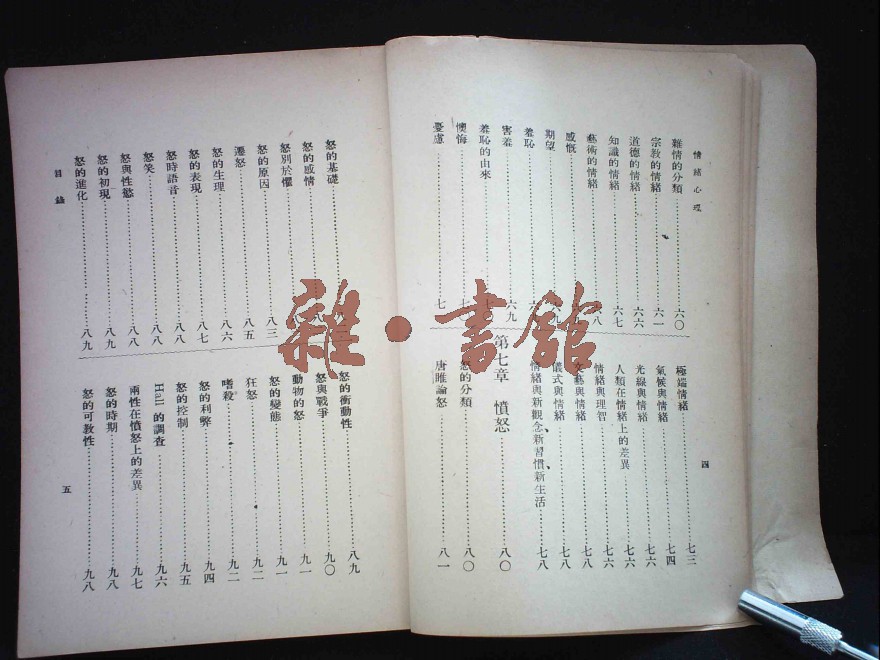 情緒心理
雜情的分類……六〇
宗教的情緒……六一
道德的情緒……六六
知識的情緒……六七
藝術的情緒……八
感慨
期望……九
羞恥……六
害羞……六九
羞恥的由來
懊悔……七
憂慮……七
極端情緒……七三
氣候與情緒……七四
光線與情緒……七六
人類在情緒上的差異……七六
情緒與理智……七六
文藝與情緒……七八
儀式與情緒……七八
情緒與新觀念、新習慣、新生活……七八
第七章 憤怒……八〇
怒的分類……八〇
唐睢論怒……八一
四
怒的基礎
怒的感情……八
怒別於懼……八
怒的原因……八三
遷怒……八五
怒的生理……八六
怒的表現……八七
怒時語音……八八
怒笑……八八
怒與性慾……八八
怒的初現……八九
怒的進化……八九
目錄
怒的衝動性……八九
怒與戰爭……九〇
動物的怒……九一
怒的變態……九一
狂怒……九二
嗜殺……九二
怒的利弊……九四
怒的控制……九五
Hall 的調查……九六
兩性在憤怒上的差異……九七
怒的時期……九八
怒的可教性……九八
五
雜·書館